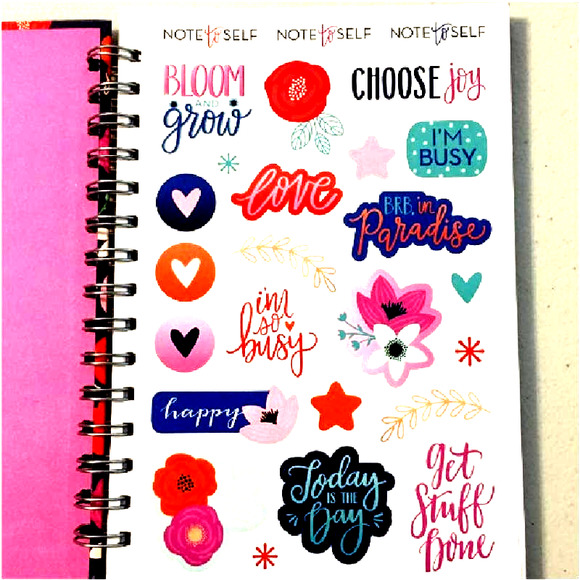 NOTE to SELF NOTE to SELF NOTE to SELF
BLOOM
AND
grow
CHOOSE joy
I'M
BUSY
love
BRB, in
Paradise
i'm
so
busy
happy
Today
IS THE
Day
get
Stuff
Done